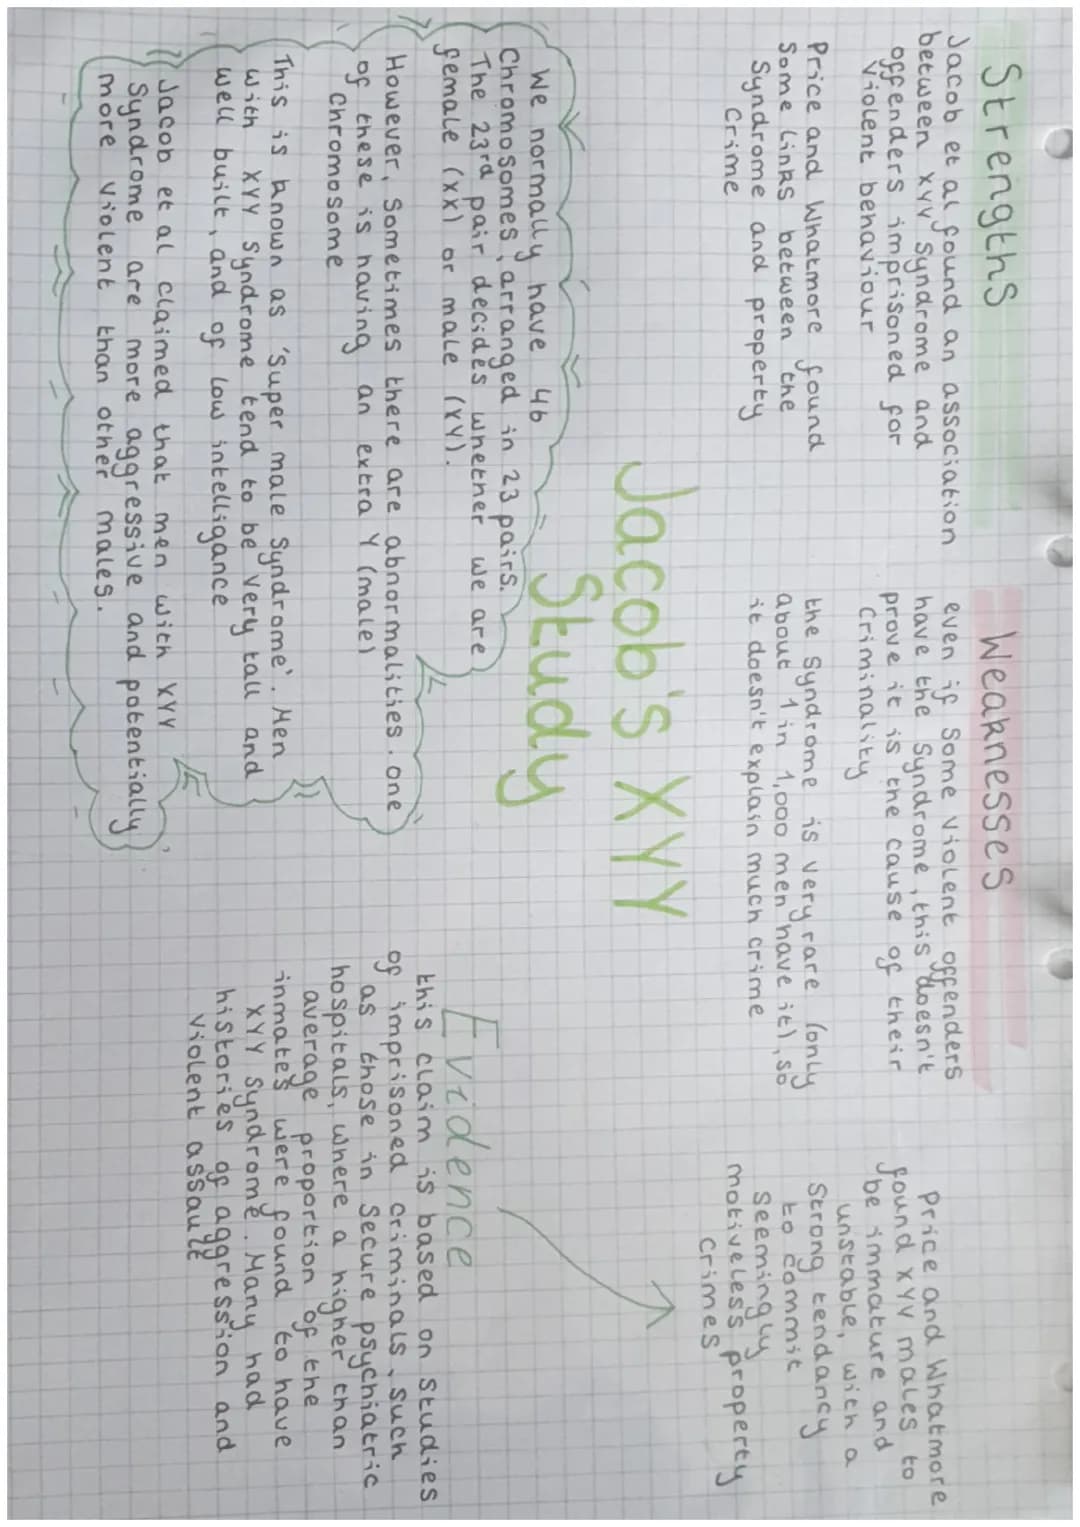 Strengths
Jacob et al found an association
between XYY Syndrome and
offenders imprisoned for
violent behaviour
Price and Whatmore found
some links between the
Syndrome and property
Crime
Weaknesses
even if some violent offenders
have the Syndrome, this doesn't
prove it is the cause of their
Criminality
the Syndrome is very rare (only
about 1 in 1,000 men have it), so
it doesn't explain much crime
Price and Whatmore
found XYY males to
be immature and
unstable, with a
Strong tendancy
to commit
seemingly
motiveless property
Crimes
Jacob's XYY
Study
We normally have 46
Chromosomes, arranged in 23 pairs.
The 23rd pair decides whether we are
female (XX) or male (XY).
However, Sometimes there are abnormalities. one
of these is having an extra Y (male)
Chromosome
This is known as 'Super male Syndrome'. Men
with XYY Syndrome tend to be very tall and
well built, and of low intelligance
Jacob et al claimed that men with XYY
Syndrome are more aggressive and potentially
more violent than other males.
Evidence
this claim is based on Studies
of imprisoned criminals, such
as those in Secure psychiatric
hospitals, where a higher than
average proportion of the
inmates were found to have
XYY Syndrome. Many had
histories of aggression and
violent assault